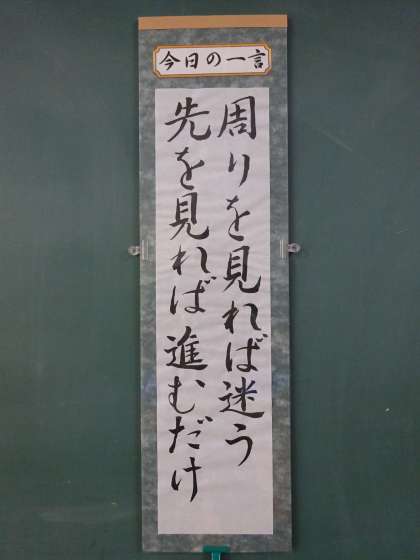 今日の一言
周りを見れば迷う
先を見れば進むだけ